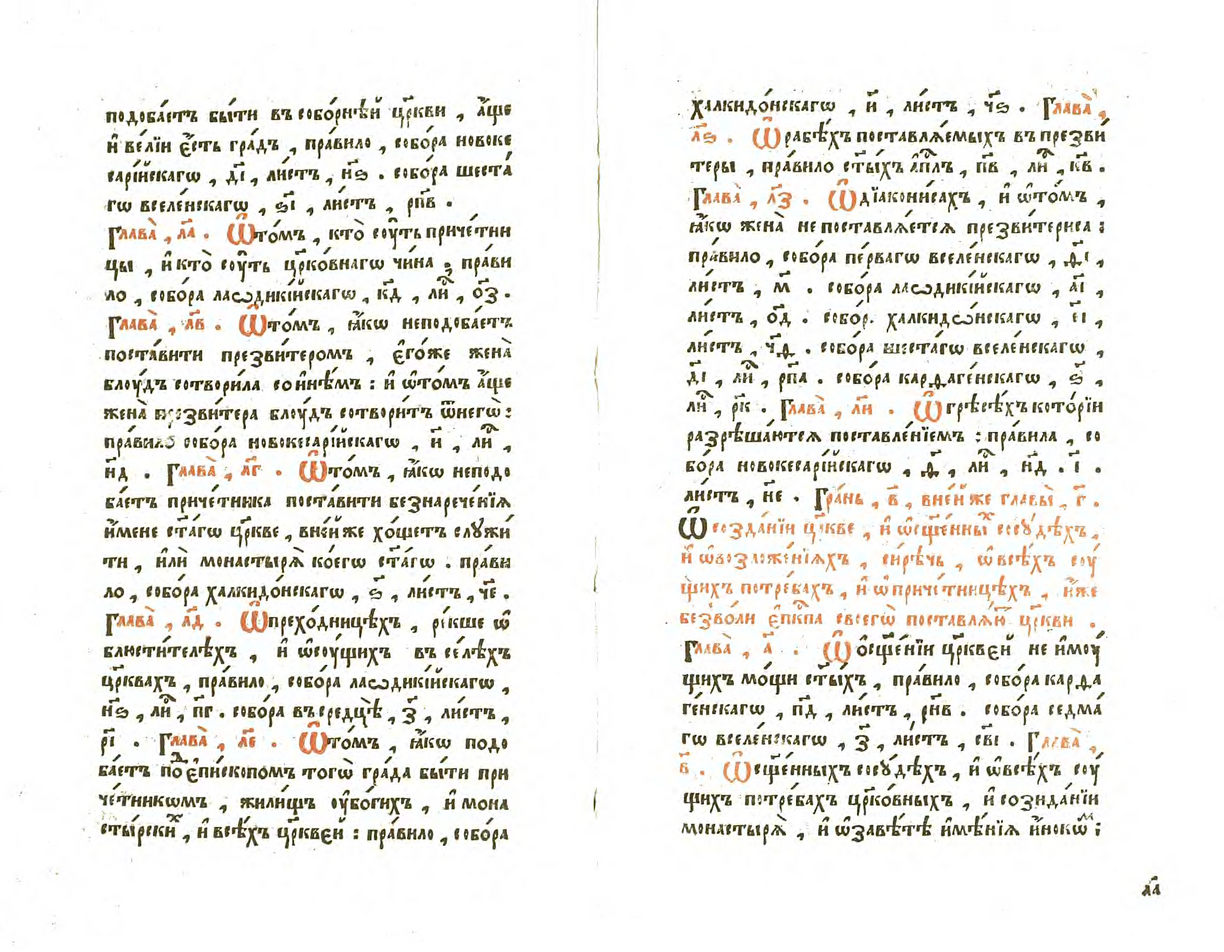 подоба́етъ бы́ти въ собо́рнѣй цр҃кви , а҆́ще
и҆ ве́лїи є҆́сть гра́дъ , пра́вило , собо́ра новоке
сарі́йскагѡ , д҃і , ли́стъ , н҃ѕ . собо́ра шеста́
гѡ вселе́нскагѡ , ѕ҃і , ли́стъ , рп҃в .
Глава̀ , л҃а . Ѽто́мъ , кто̀ сꙋ́ть приче́тни
цы , и҆ кто̀ сꙋ́ть цр҃ко́внагѡ чи́на ; пра́ви
ло , собо́ра лаѡдикі́йскагѡ , к҃д , лиⷭ҇ , о҃з .
Глава̀ , л҃в . Ѽто́мъ , ꙗ҆́кѡ неподоба́етъ
поста́вити презви́теромъ , є҆го́же жена̀
блꙋ́дъ сотвори́ла со и҆нѣ́мъ : и҆ ѡ҆то́мъ а҆́ще
жена̀ презви́тера блꙋ́дъ сотвори́тъ ѿнегѡ̀ :
пра́вило собо́ра новокесарі́йскагѡ , и҃ , лиⷭ҇ ,
н҃д . Глава̀ , л҃г . Ѽто́мъ , ꙗ҆́кѡ неподо
ба́етъ приче́тника поста́вити безнарече́нїѧ
и҆́мене ст҃а́гѡ цр҃кве , вне́йже хо́щетъ слꙋжи́
ти , и҆лѝ монастырѧ̀ ко́егѡ ст҃а́гѡ . пра́ви
ло , собо́ра халкидо́нскагѡ , ѕ҃ , ли́стъ , ч҃е .
Глава̀ , л҃д . Ѽпреходницѣ́хъ , ре́кше ѡ҆
блюсти́телѣхъ , и҆ ѡ҆сꙋ́щихъ въ се́лѣхъ
цр҃квахъ , пра́вило , собо́ра лаѡдикі́йскагѡ ,
н҃ѕ , лиⷭ҇ , п҃г . собо́ра въ средцѣ̀ , з҃ , ли́стъ ,
р҃і . Глава̀ , л҃е . Ѽто́мъ , ꙗ҆́кѡ подо
ба́етъ поⷣ є҆пи́скопомъ тогѡ̀ гра́да бы́ти при
че́тникѡмъ , жили́щъ ᲂу҆бо́гихъ , и҆ мона
сты́рскиⷯ , и҆ всѣ́хъ цр҃кве́й : пра́вило , собо́ра
халкидо́нскагѡ , и҃ , ли́стъ , ч҃ѕ . Глава̀ ,
л҃ѕ . Ѽрабѣ́хъ поставлѧ́емыхъ въ презви́
теры , пра́вило ст҃ы́хъ а҆п҃лъ , п҃в , лиⷭ҇ , к҃в .
Глава̀ , л҃з . Ѽдїакони́сахъ , и҆ ѡ҆то́мъ ,
ꙗ҆́кѡ жена̀ не поставлѧ́етсѧ презвитериса :
пра́вило , собо́ра пе́рвагѡ вселе́нскагѡ , ѳ҃і ,
ли́стъ , м҃ . собо́ра лаѡдикі́йскагѡ , а҃і ,
ли́стъ , о҃д . собо́р. халкидѡ́нскагѡ , е҃і ,
ли́стъ , ч҃ѳ . собо́ра шеста́гѡ вселе́нскагѡ ,
д҃і , лиⷭ҇ , рп҃а . собо́ра карѳаге́нскагѡ , ѕ҃ ,
лиⷭ҇ , р҃к . Глава̀ , л҃и . Ѽгрѣсѣ́хъ кото́рїи
разрѣша́ютсѧ поставле́нїемъ : пра́вила , со
бо́ра новокесарі́йскагѡ , ѳ҃ , лиⷭ҇ , н҃д . і҃ .
ли́стъ , н҃е . Гра́нь , в҃ , вне́йже главы̀ , г҃ .
Ѽсозда́нїи цр҃кве , и҆ ѡ҆сщ҃е́нныⷯ сосꙋ́дѣхъ ,
и҆ ѡ҆возложе́нїихъ , си́рѣчь , ѡ҆всѣ́хъ сꙋ́
щихъ потре́бахъ , и҆ ѡ҆причетницѣ́хъ , и҆̀же
безво́ли є҆пк҃па своегѡ̀ поставлѧ́ю цр҃кви .
Глава̀ , а҃ . Ѽѻсщ҃е́нїи цр҃кве́й не и҆мꙋ́
щихъ мо́щи ст҃ы́хъ , пра́вило , собо́ра карѳа
ге́нскагѡ , п҃д , ли́стъ , рн҃в . собо́ра седма́
гѡ вселе́нскагѡ , з҃ , ли́стъ , св҃і . Глава̀ ,
в҃ . Ѽсщ҃е́нныхъ сосꙋ́дѣхъ , и҆ ѡ҆всѣ́хъ сꙋ́
щихъ потре́бахъ цр҃ко́вныхъ , и҆ созида́нїи
монастырѧ̀ , и҆ ѡ҆завѣ́тѣ и҆мѣ́нїѧ и҆́нокѡⷨ ;
л҃а